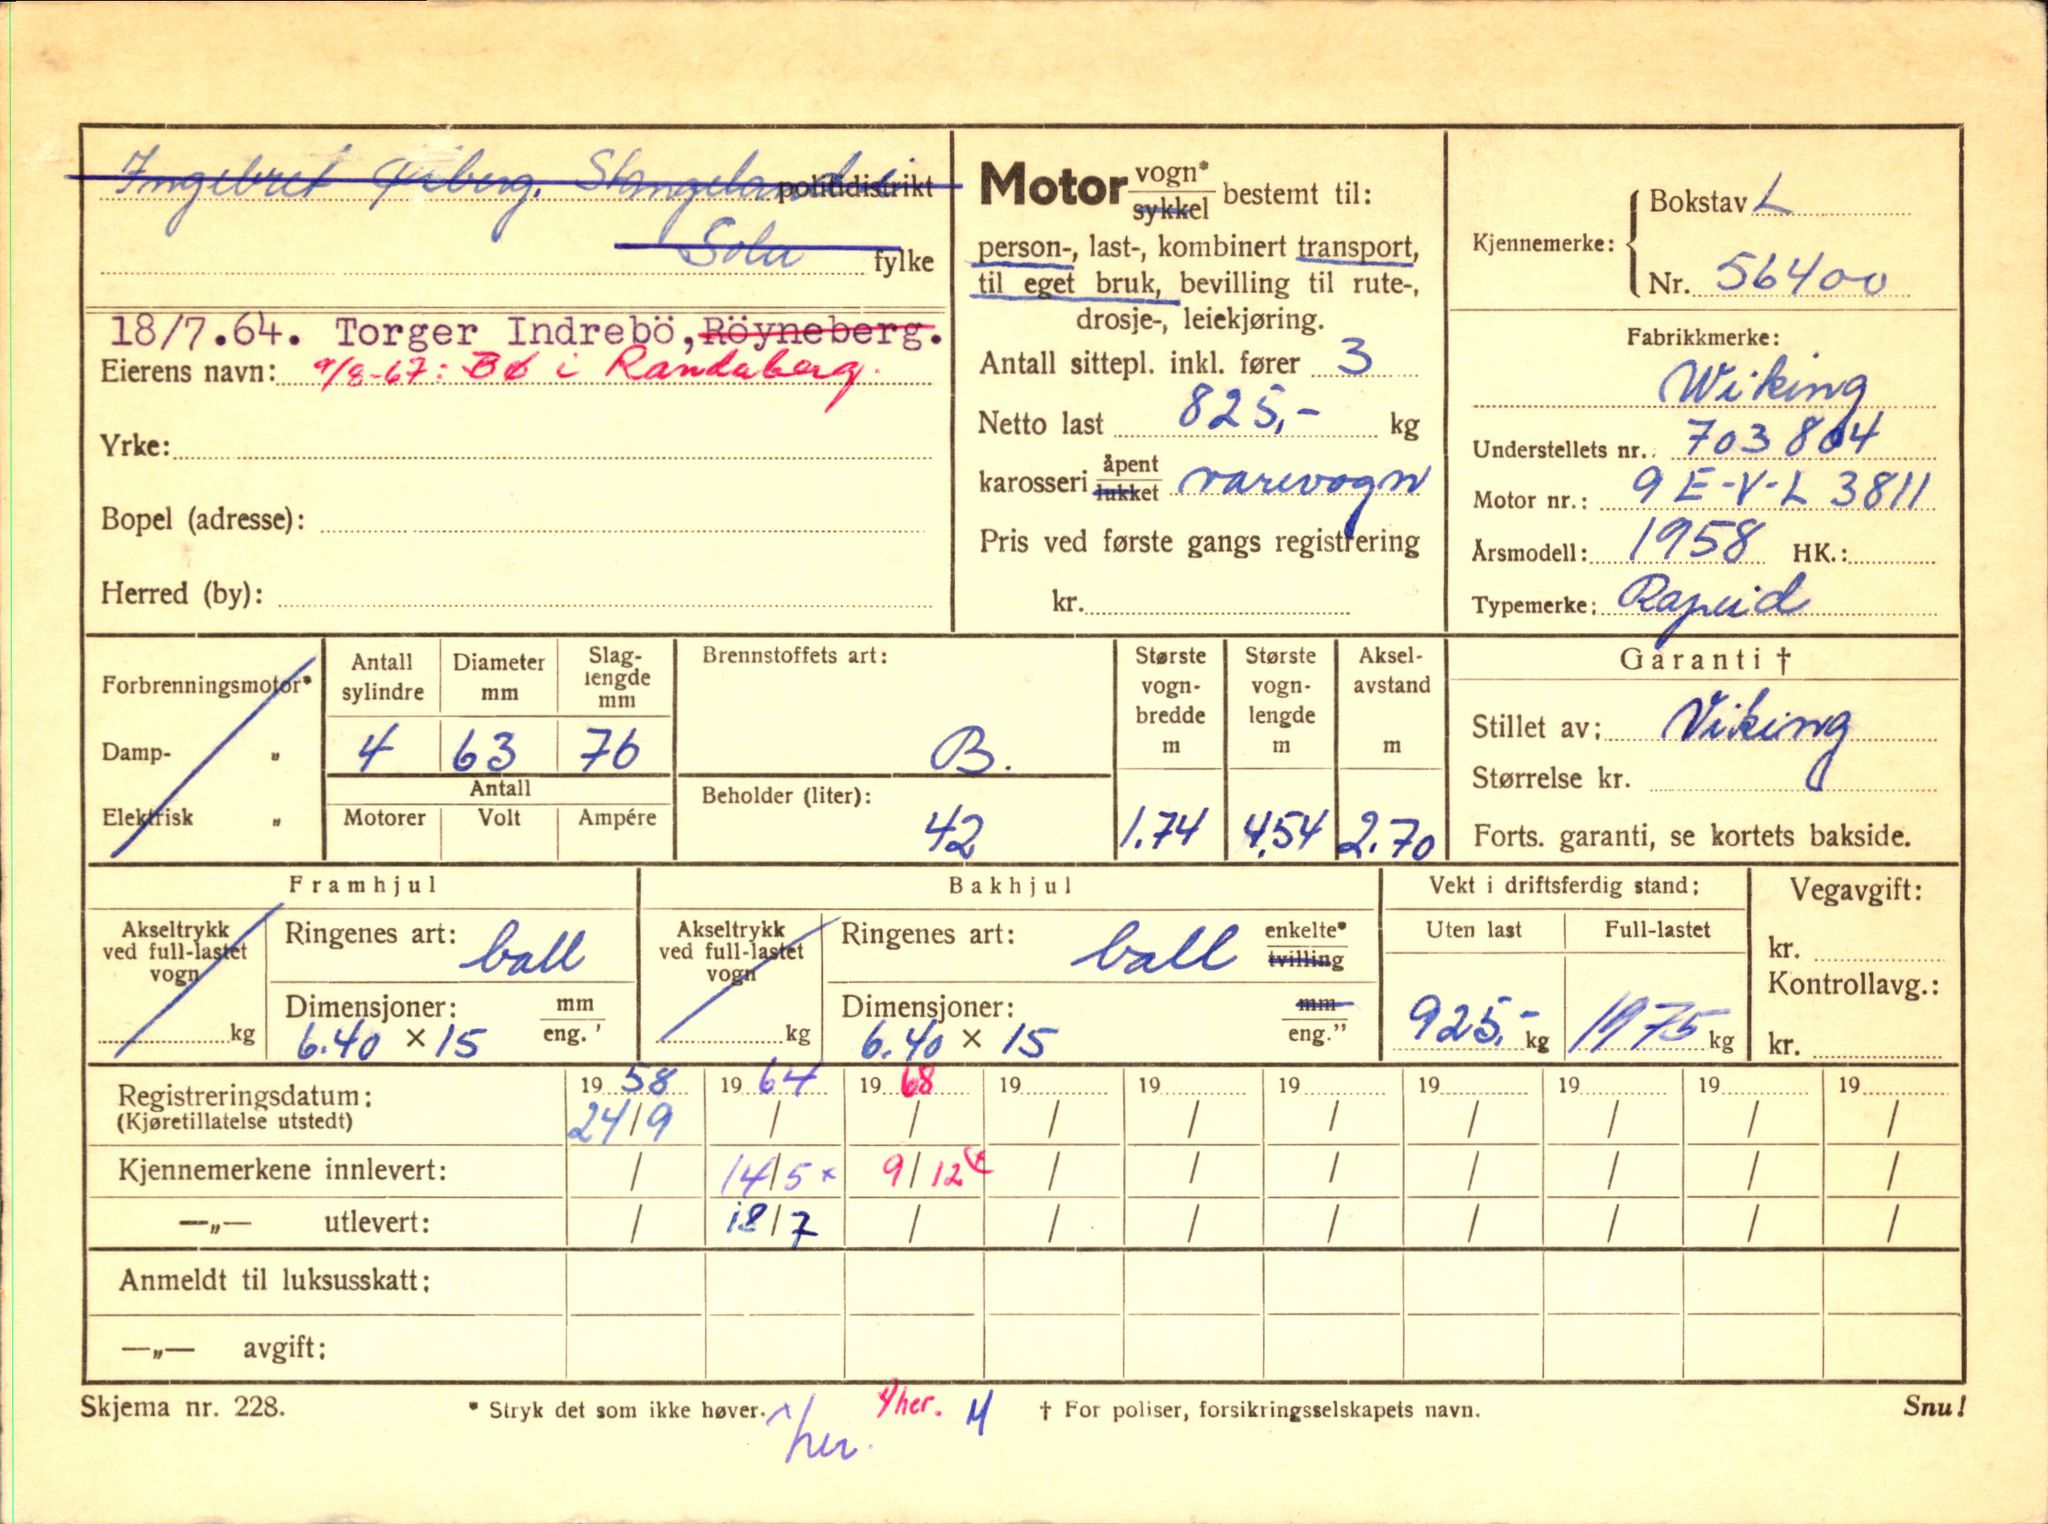 Ingebret Stangeland politidistrikt
Sola fylke
18/7.64. Torger Indrebö, Röyneberg.
Eierens navn: 9/8-67: Bø i Randaberg.
Yrke:
Bopel (adresse):
Herred (by):
Motor vogn* sykkel bestemt til:
person-, last-, kombinert transport,
til eget bruk, bevilling til rute-,
drosje-, leiekjøring.
Antall sittepl. inkl. fører 3
Netto last 825,- kg
karosseri åpent lukket varevogn
Pris ved første gangs registrering
kr.
Kjennemerke: Bokstav L
Nr. 56400
Fabrikkmerke:
Wiking
Understellets nr.: 703804
Motor nr.: 9 E-V-L 3811
Årsmodell: 1958 HK.:
Typemerke: Rapid
Forbrenningsmotor*
Damp- „
Elektrisk „
Antall sylindre
Diameter mm
Slaglengde mm
4 63 76
Antall
Motorer Volt Ampére
Brennstoffets art:
B.
Beholder (liter):
42
Største vogn-bredde m
1.74
Største vogn-lengde m
4.54
Aksel-avstand m
2.70
Garanti †
Stillet av: Viking
Størrelse kr.
Forts. garanti, se kortets bakside.
Framhjul
Akseltrykk
ved full-lastet
vogn
kg
Ringenes art: ball
Dimensjoner: mm
6.40 × 15 eng.'
Bakhjul
Akseltrykk
ved full-lastet
vogn
kg
Ringenes art: ball enkelte* tvilling
Dimensjoner: mm
6.40 × 15 eng.”
Vekt i driftsferdig stand:
Uten last Full-lastet
925,- kg 1975 kg
Vegavgift:
kr.
Kontrollavg.:
kr.
Registreringsdatum: 19 58 19 64 19 68 19 19 19 19 19 19 19
(Kjøretillatelse utstedt) 24/9 / / / / / / / / /
Kjennemerkene innlevert: / 14/5 x 9/12 x / / / / / / /
—„— utlevert: / 18/7 / / / / / / / /
Anmeldt til luksusskatt:
—„— avgift:
Skjema nr. 228. * Stryk det som ikke høver. her. M † For poliser, forsikringsselskapets navn. Snu!
her.